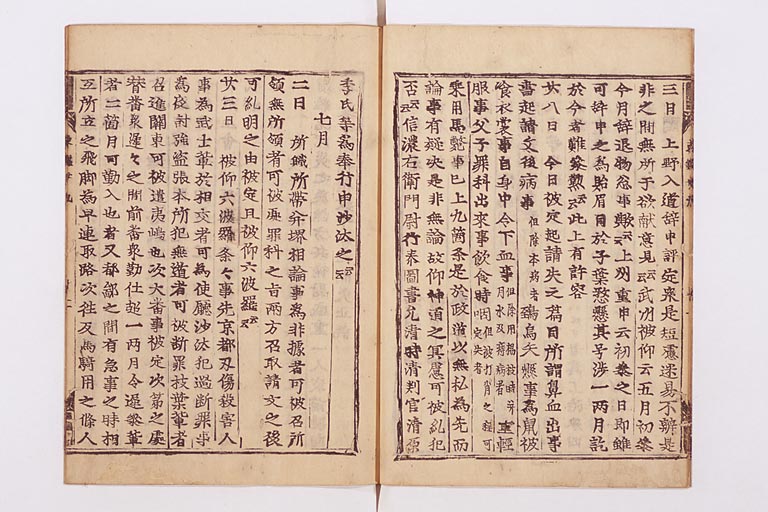 三日 上野入道辞申評定衆是短慮迷易不辨是
非之間無所于欲献意見云云武州被仰云五月初参
今月辞退物忩事歟云云上州重申云初参之日即雖
可辞申之為貽眉目於子葉憖懸其号渉一両月訖
於今者難参勲云云此上有許容
廿八日 今日被定起請失之篇目所謂鼻血出事
書起請文後病事但除本病者鵄烏矢懸事為鼠被
食衣裳事自身中令下血事但除用楊枝時并月水及痔病者重軽
服事父子罪科出来事飲食時咽但被打背之程可定失者
乗用馬斃事已上九箇条是於政道以無私為先而
論事有疑决是非無端故仰神道之冥慮可被糺犯
否云云信濃右衛門尉行泰図書允清時清判官清原
季氏等為奉行申沙汰之云云
七月
二日 所職所帯并堺相論事為非據者可被召所
領無所領者可被處罪科之旨両方召取請文之後
可糺明之由被定且被仰六波羅云云
廿三日 被仰六波羅条々事先京都刃傷殺害人
事為武士輩於相交者可為使廳沙汰犯過断罪事
為夜討強盗張本所犯無遁者可被断罪枝葉輩者
召進關東可被遣夷嶋也次大番事被定次第之處
替番衆遅々之間前番衆勤仕超一両月令遅参輩
者二箇月可勤入也者又都鄙之間有急事之時相
互所立之飛脚為早速取路次徃反馬騎用之條人